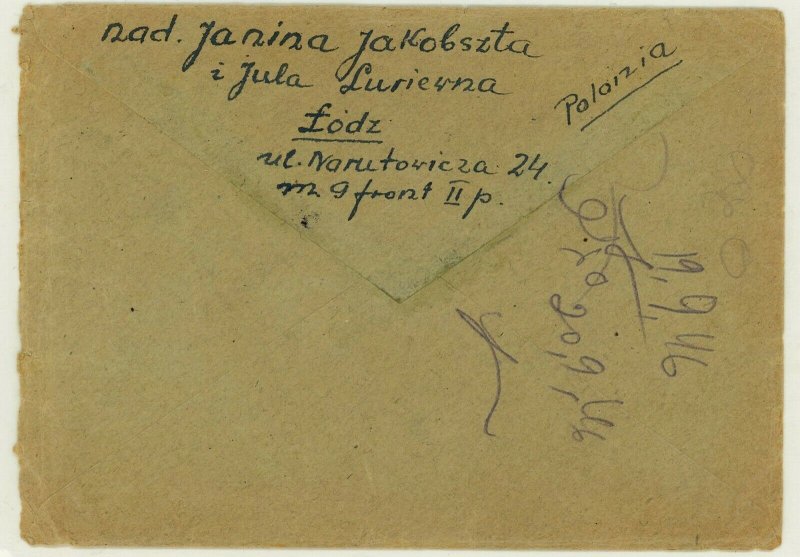 nad. Janina Jakobszta
i Jula Luriewna
Łódz
ul. Narutowicza 24.
m 9 front II p.
Polonia
19.9.46
20.9.46